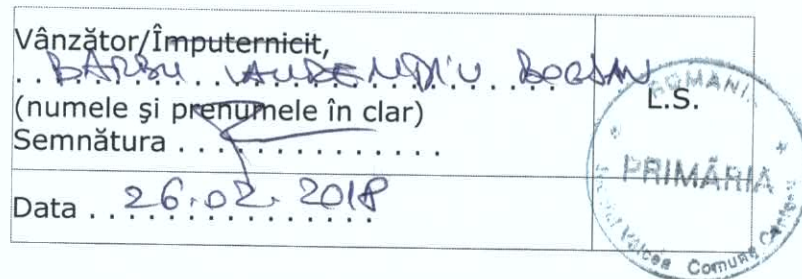 Vânzător/Împuternicit,
BARBU LAURENȚIU BOGDAN
(numele și prenumele în clar)
L.S.
Semnătura . . . . . . . . . . . . . . .
Data . . 26.02.2018
ROMANIA
PRIMĂRIA
Vâlcea Comuna